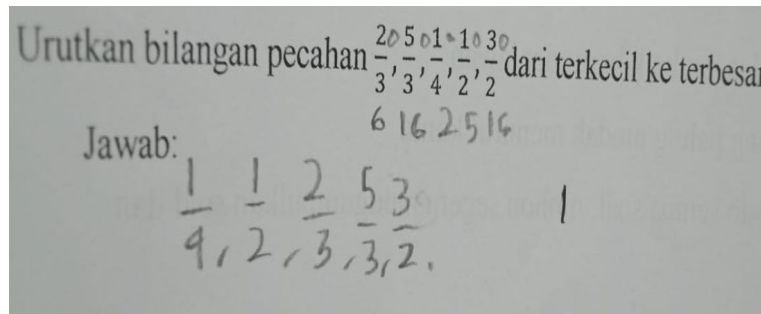 Urutkan bilangan pecahan 20/3, 50/3, 10/4, 10/2, 30/2 dari terkecil ke terbesar
6 16 2 5 16
Jawab:
1/4, 1/2, 2/3, 5/3, 3/2.
1